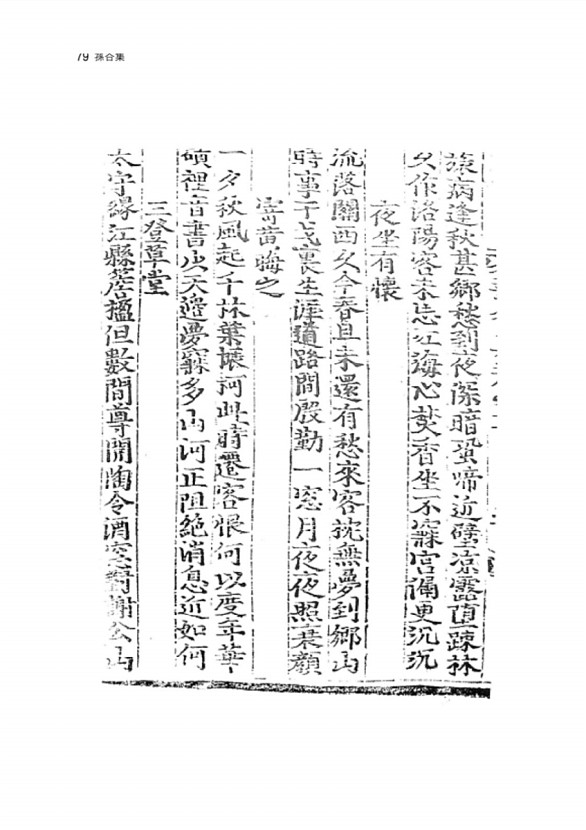 79 孫合集
旅病逢秋甚鄉愁到夜深暗蛩啼近壁涼露踈林
久作洛陽客未忘江海心焚香坐不寐宮漏更沉沉
夜坐有懷
流落關西久今春且未還有愁來客枕無夢到鄉山
時事干戈裏生涯道路間殷勤一窓月夜夜照衰顔
寄黄晦之
一夕秋風起千林葉摵柯此時遷客恨何以度年華
磧裡音書少天邊夢寐多山河正阻絶消息近如何
三登草堂
太守緣江縣簷楹但數間尊開陶令酒窓對謝公山